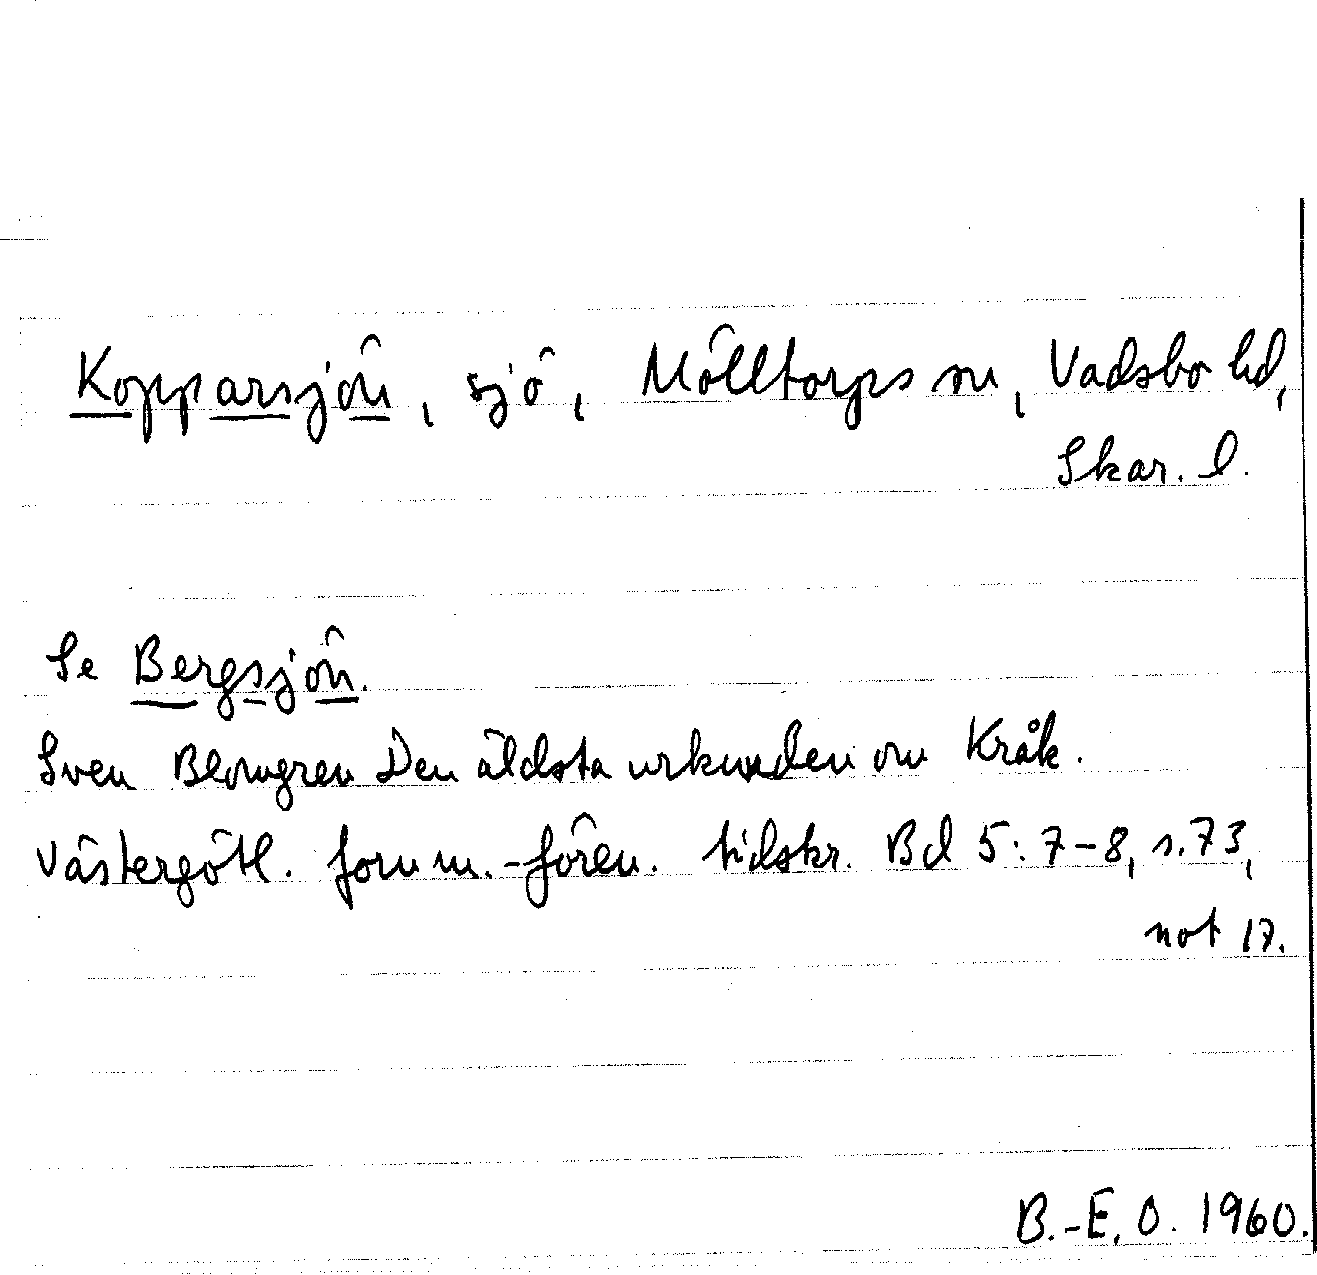 Kopparsjön, sjö, Mölltorps sn, Vadsbo hd,
Skar. l.
Se Bergsjön.
Sven Blomgren Den äldsta urkunden om Kråk.
Västergötl. fornm.-fören. tidskr. Bd 5: 7-8, s. 73,
not 17.
B.-E. O. 1960.